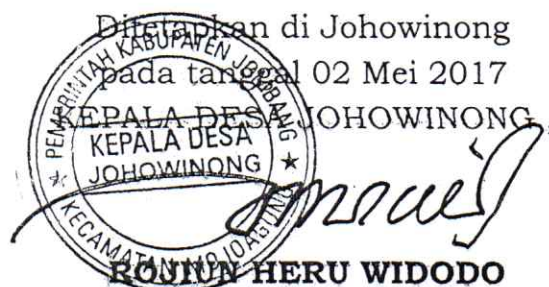 Ditetapkan di Johowinong
pada tanggal 02 Mei 2017
KEPALA DESA JOHOWINONG,
PEMERINTAH KABUPATEN JOMBANG
KEPALA DESA
JOHOWINONG
KECAMATAN MOJOAGUNG
ROJIUN HERU WIDODO